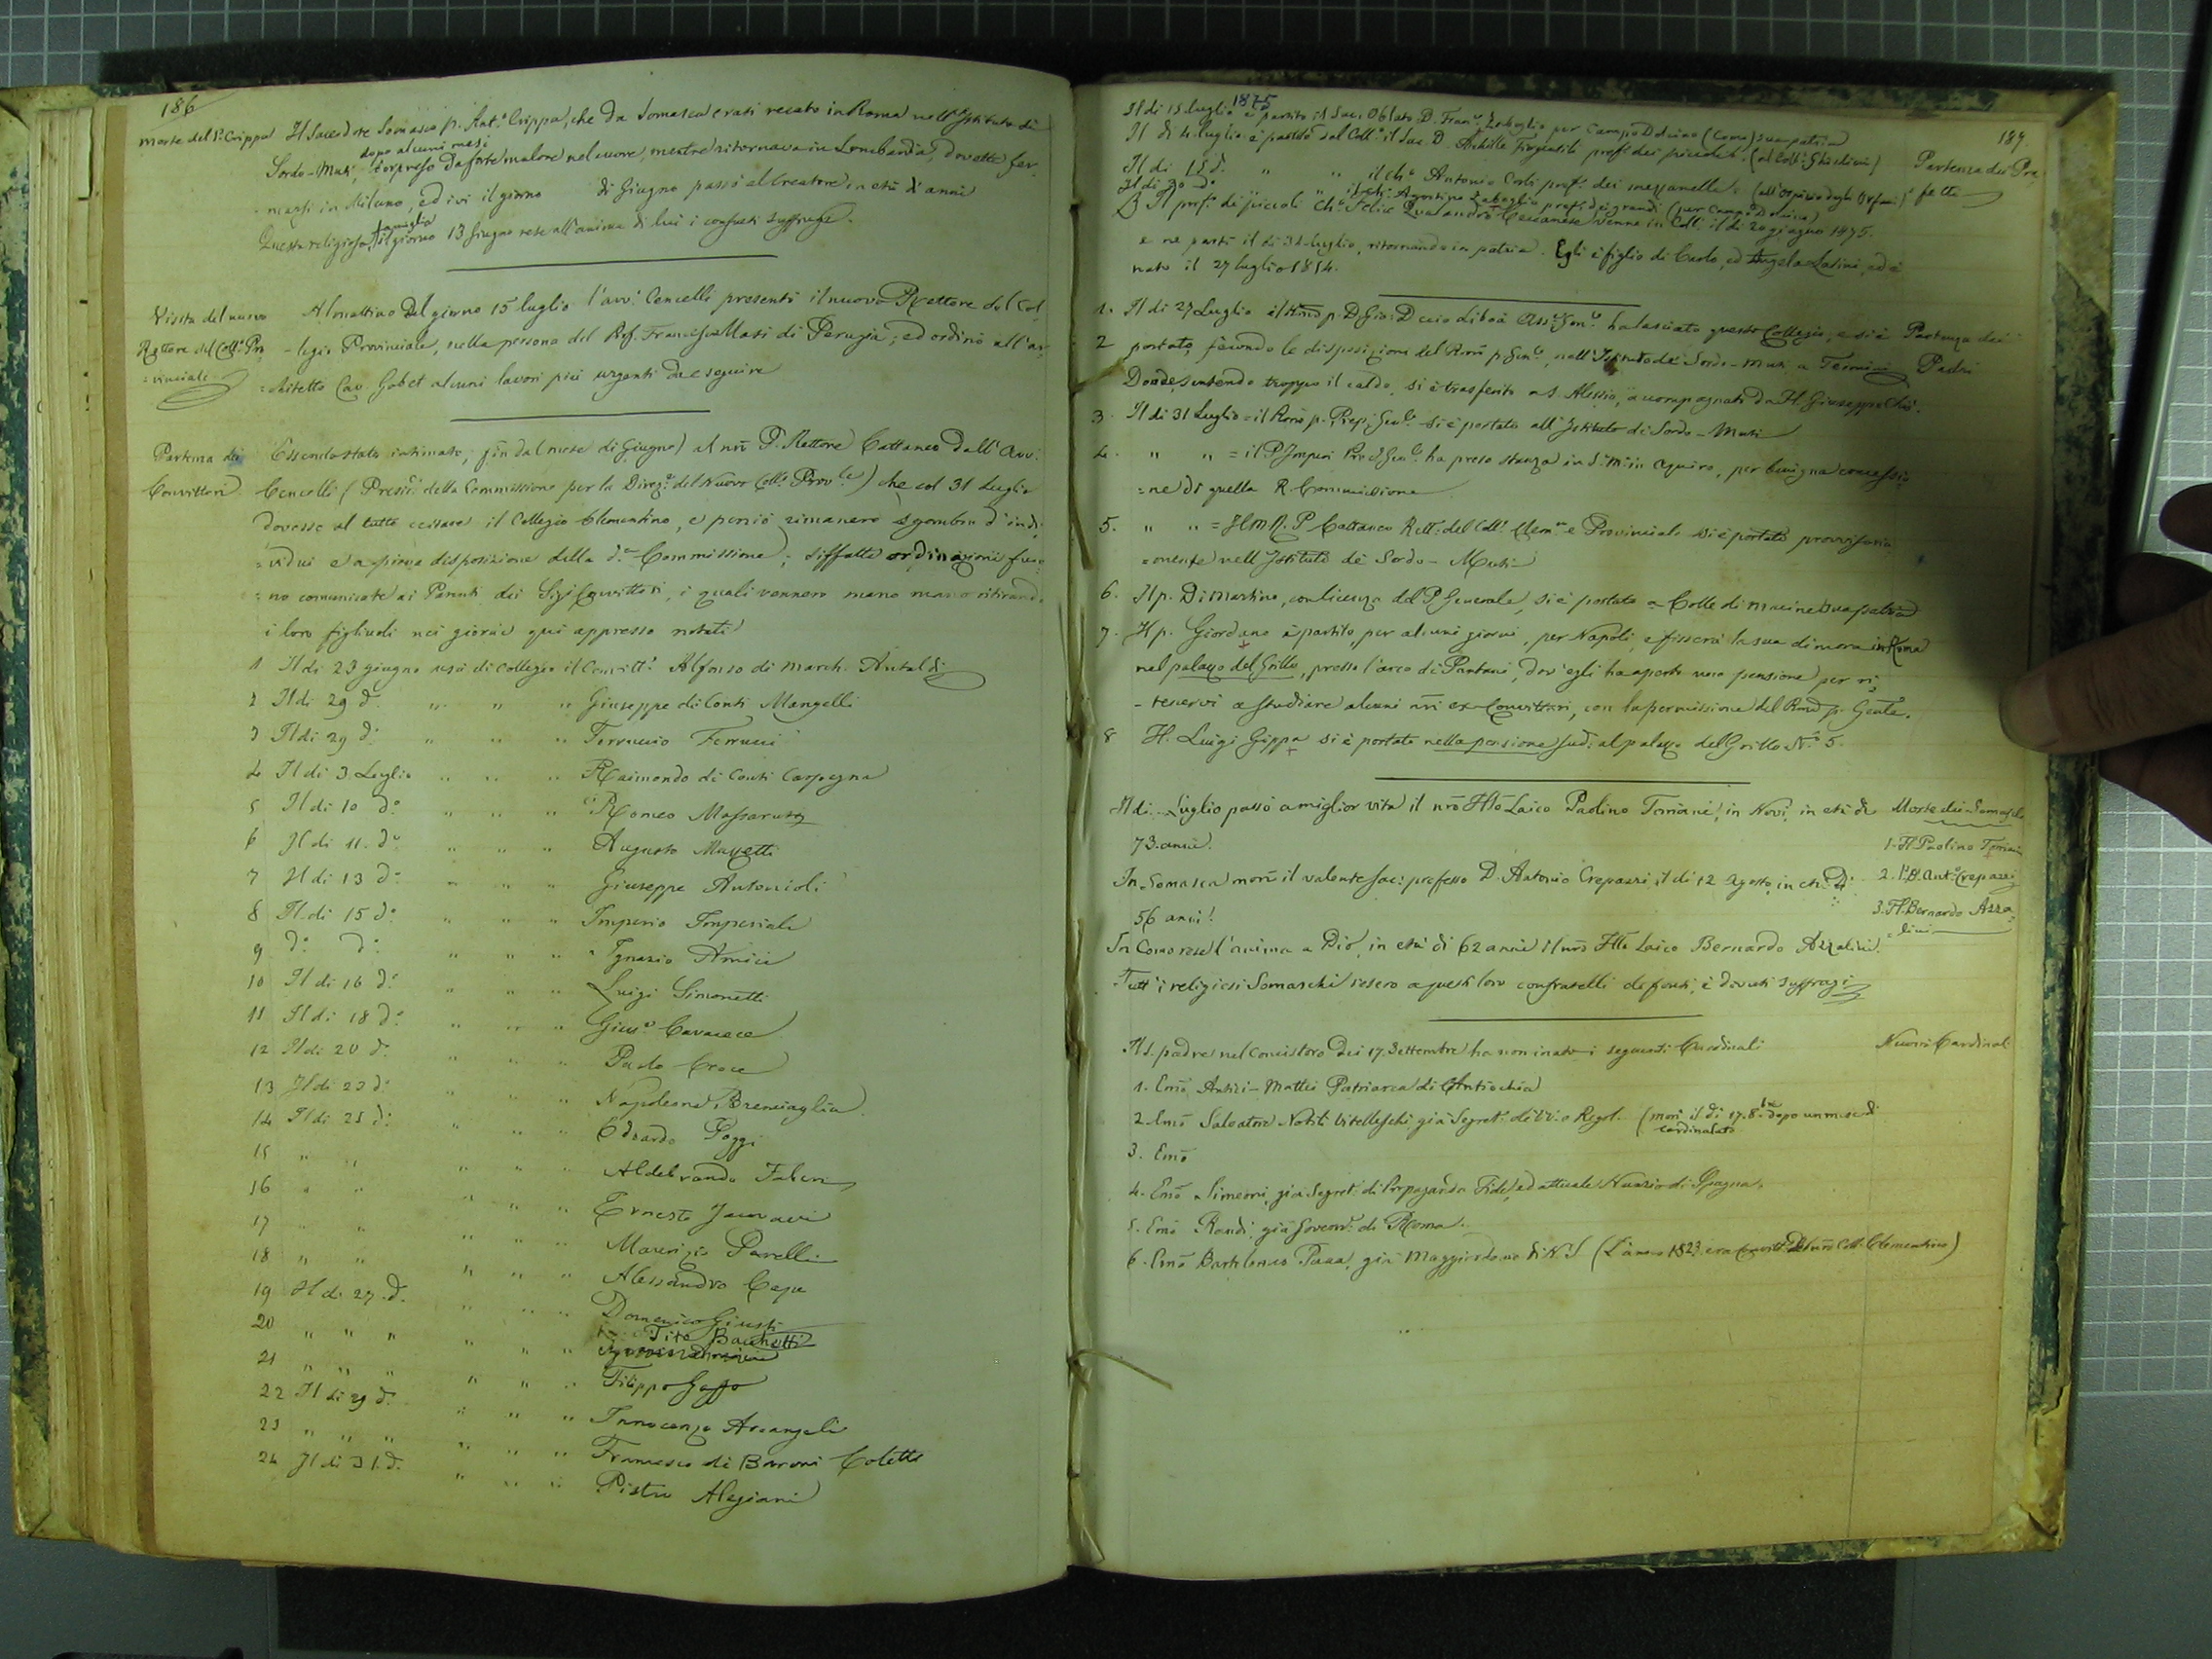 186
morte del P. Crippa Il Sacerdote Somasco p. Ant.º Crippa, che da Somasca erasi recato in Roma nell'Istituto di
dopo alcuni mesi
Sordo-Muti, sorpreso da forte malore nel cuore, mentre ritornava in Lombardia, dovette fer-
-marsi in Milano, ed ivi il giorno di Giugno passò al Creatore in età d'anni
famiglia
Questa religiosa il giorno 13 Giugno rese all'anima di lui i consueti suffragi.
Visita del nuovo Al mattino del giorno 15 luglio l'avv. Cencelli presentò il nuovo Rettore del Col-
Rettore del Coll.º Pro -legio Provinciale, nella persona del Prof. Francesco Masi di Perugia; ed ordinò all'ar-
=vinciale =chitetto Cav. Gabet alcuni lavori più urgenti da eseguire
Partenza dei Essendo stato intimato, fin dal mese di Giugno al nrõ P. Rettore Cattaneo dall'Avv.
Convittori Cencelli (Presid.e della Commissione per la Direz.e del nuovo Coll.º Prov.le) che col 31 Luglio
dovesse al tutto cessare il Collegio Clementino, e perciò rimanere sgombro d'indi-
=vidui e a piena disposizione della d.a Commissione; siffatte ordinazioni furo-
=no comunicate ai Parenti dei Sigi Convittori, i quali vennero mano mano ritirando
i loro figliuoli nei giorni qui appresso notati
1 Il di 23 giugno uscì di collegio il Convitt.e Alfonso di march. Antaldi
2 Il di 29 d.º " " " Giuseppe di Conti Mangelli
3 Il di 29 d.º " " " Ferruccio Ferrucci
4 Il di 3 Luglio " " " Raimondo di Conti Carpegna
5 Il di 10 d.º " " " Romeo Massaruti
6 Il di 11. d.º " " " Augusto Muzzetti
7 Il di 13 d.º " " " Giuseppe Antonioli
8 Il di 15 d.º " " " Imperio Imperiale
9 d.º d.º " " " Ignazio Amici
10 Il di 16 d.º " " " Luigi Simonetti
11 Il di 18 d.º " " " Gius.e Cavacece
12 Il di 20 d.º " " " Paolo Croce
13 Il di 23 d.º " " " Napoleone Brenciaglia
14 Il di 25 d.º " " " Edoardo Poggi
15 " " " " " Aldebrando Fabeni
16 " " " " " Ernesto Jacovacci
17 " " " " " Maurizio Parelli
18 " " " " " Alessandro Cape
19 Il di 27. d. " " " Domenico Giusti
20 " " " " " " Tito Bacchetti
21 " " " " " " Filippo Gaffo
22 Il di 29 d.º " " " Innocenzo Arcangeli
23 " " " " " " Francesco di Baroni Coletti
24 Il di 31. d. " " " Pietro Alegiani
187.
1875
Il di 15 luglio è partito il Sac. Oblato D. Fran.º Zaboglio per Campo Dolcino (Como) sua patria
Il di 4. luglio è passato dal Coll.º il Sac. D. Achille Argentili pref.º dei piccoli. (al Coll. Ghislieri) Partenza dei Pre-
Il di 15 d. " " il ch.º Antonio Corti pref.º dei mezzanelli (all'Ospizio degli Orfani) fetti
Il di 30 d.º il ch.º Agostino Zaboglio pref.º dei grandi (per Campo Dolcino)
Il pref.º di piccoli Ch.º Felice Ceccanese venne in Coll. il di 20 giugno 1875.
e ne partì il di 31 luglio, ritornando in patria. Egli è figlio di Carlo, ed Angela Latini, ed è
nato il 27 luglio 1854.
1. Il di 27 Luglio il Rmõ p. D. Gio: Decio Libois Ass.e Gen.le ha lasciato questo Collegio, e si è Partenza dei
2 portato, secondo le disposizioni del Rmõ p. Gen.le, nell'Istituto dei Sordo-Muti a Termini Padri
Donde, sentendo troppo il caldo, si è trasferito a S. Alessio, accompagnato da H. Giuseppe
3. Il di 31 Luglio = il Rmõ p. Prep. Gen.le si è portato all'Istituto di Sordo-Muti
4. " " = il P. Imperi Proc. Gen.le ha preso stanza in S. M.a in Aquiro, per benigna concessio-
=ne di quella R. Commissione
5. " " = Il M.R. P. Cattaneo Rett.e del Coll.º Clem.º e Provinciale si è portato provvisoria-
=mente nell'Istituto dei Sordo-Muti
6. Il p. Di Martino, con licenza del P. Generale, si è portato a Colle di macine sua patria
7. Il p. Giordano è partito, per alcuni giorni, per Napoli, e fisserà la sua dimora in Roma
nel palazzo del Grillo, presso l'arco di Pantani, dov'egli ha aperto una pensione per ri-
-tenervi a studiare alcuni nri ex-Convittori, con la permissione del Rmõ p. Gen.le.
8 H. Luigi Gippa si è portato nella pensione sud.a al palazzo del Grillo N.º 5.
Il di luglio passò a miglior vita il nrõ Fllo Laico Paolino Torriani, in Novi, in età di Morte dei Somaschi
73. anni. 1. H. Paolino Torriani
In Somasca morì il valente Sac: professo D. Antonio Crepazzi, il di 12 Agosto, in età di 2. P. D. Ant.º Crepazzi
56 anni! 3. H. Bernardo Azza-
=lini
In Como rese l'anima a Dio, in età di 62 anni il nrõ Fllo Laico Bernardo Azzalini.
Tutt'i religiosi Somaschi resero a questi loro confratelli defonti, i dovuti suffragi
Il S. padre nel Concistoro dei 17. Settembre ha nominato i seguenti Cardinali Nuovi Cardinali
1. Emõ Antici-Mattei Patriarca di Antiochia
2. Emõ Salvatore Nobili Vitelleschi già Segret.º di VV. e Regol. (morì il di 17. 8.bre dopo un mese di
cardinalato
3. Emõ
4. Emõ Simeoni, già Segret.º di Propaganda Fide, ed attuale Nunzio di Spagna.
5. Emõ Randi, già Govern.e di Roma.
6. Emõ Bartolomeo Pacca, già Maggiordomo di N. S. (L'anno 1823 era Convitt.e del nrõ Coll. Clementino)